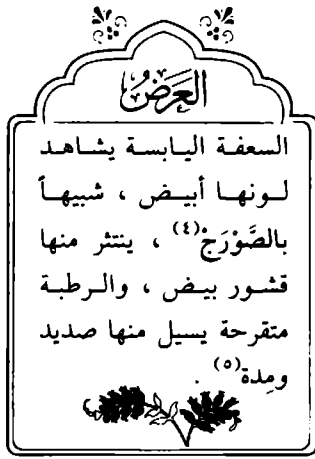 العَرَضُ
السعفة اليابسة يشاهد
لونها أبيض ، شبيهاً
بالصَّوْرَجْ(٤) ، ينتثر منها
قشور بيض ، والرطبة
متقرحة يسيل منها صديد
ومِدة(٥) .